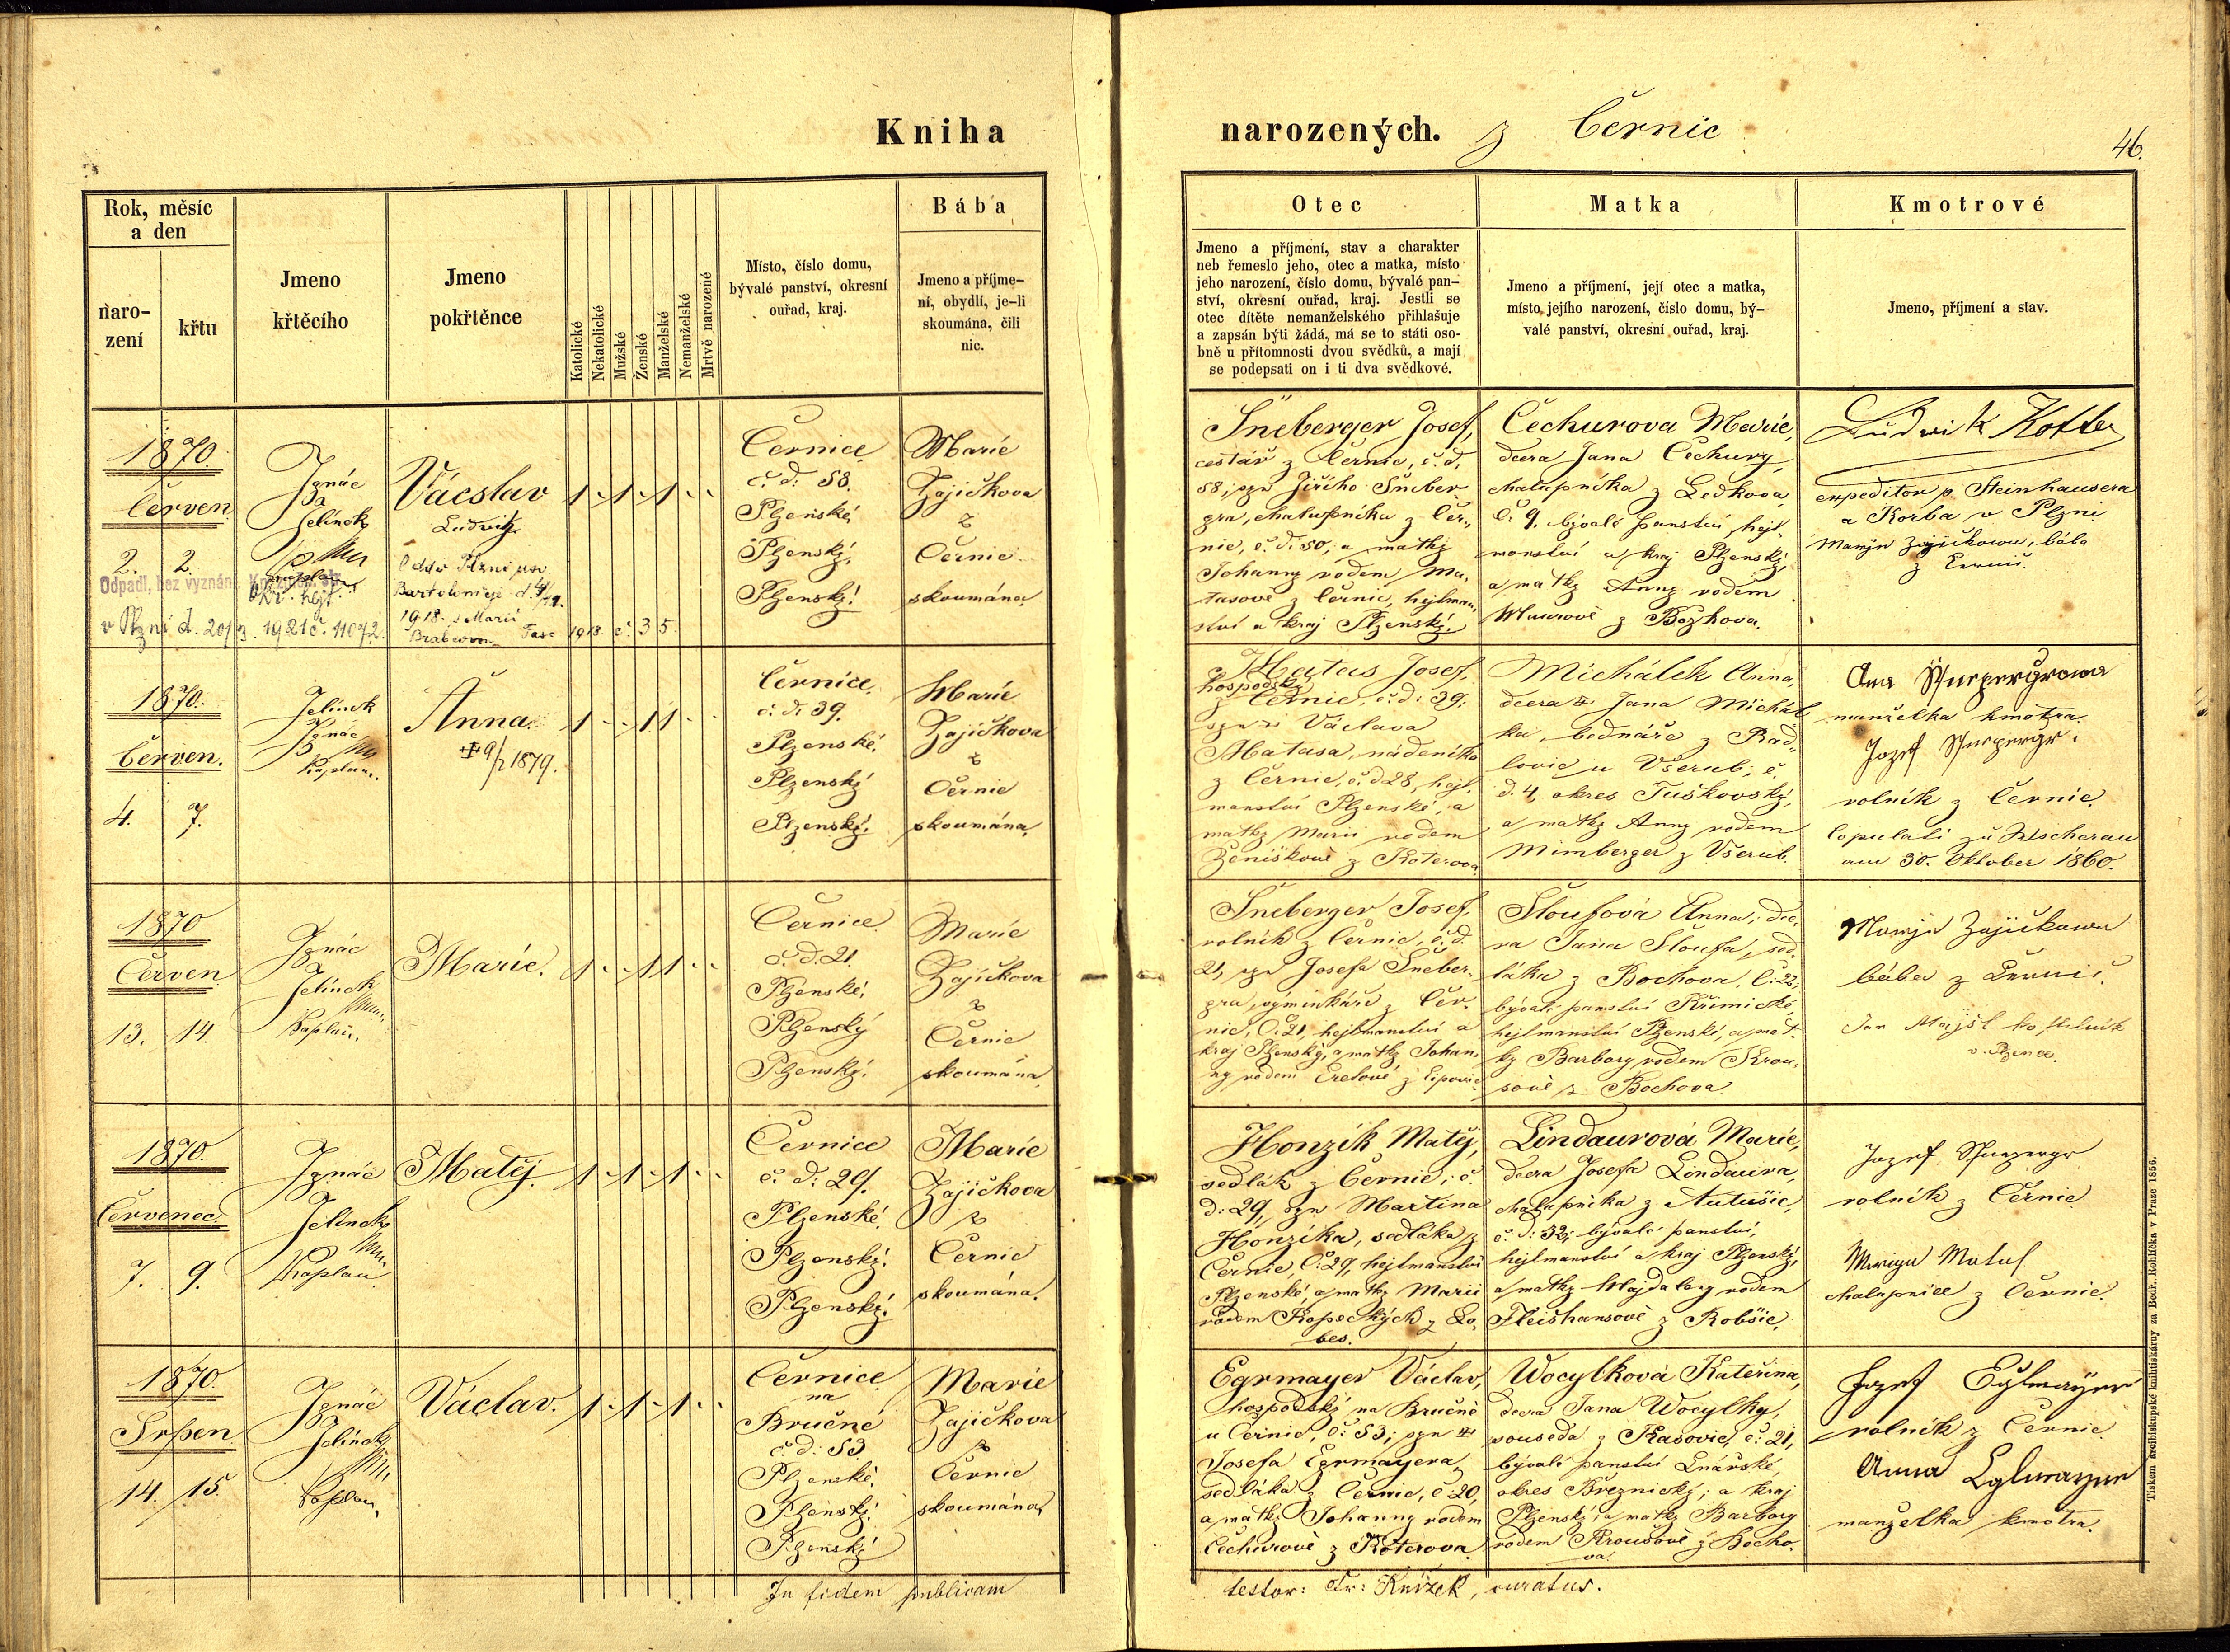 Kniha
narozených. z Černic
46.
Rok, měsíc
a den
naro-
zení
křtu
Jmeno
křtěcího
Jmeno
pokřtěnce
Katolické
Nekatolické
Mužské
Ženské
Manželské
Nemanželské
Mrtvě narozené
Místo, číslo domu,
bývalé panství, okresní
ouřad, kraj.
Bába
Jmeno a příjme-
ní, obydlí, je-li
skoumána, čili
nic.
Otec
Jmeno a příjmení, stav a charakter
neb řemeslo jeho, otec a matka, místo
jeho narození, číslo domu, bývalé pan-
ství, okresní ouřad, kraj. Jestli se
otec dítěte nemanželského přihlašuje
a zapsán býti žádá, má se to státi oso-
bně u přítomnosti dvou svědků, a mají
se podepsati on i ti dva svědkové.
Matka
Jmeno a příjmení, její otec a matka,
místo jejího narození, číslo domu, bý-
valé panství, okresní ouřad, kraj.
Kmotrové
Jmeno, příjmení a stav.
1870.
Červen
2. 2.
Ignác
Jelínek
kaplan
Vácslav
Ludvík
Odd. v Plzni u sv.
Bartoloměje d. 4/
1918. s Marií
Brabcovou Fasc 1918. č. 35.
Odpadl, bez vyznání.
v Plzni d. 20/3. 1921 č. 11072.
1 1 1
Černice
č. d. 58.
Plzeňské,
Plzenský,
Plzenský.
Marie
Zajíčkova
z
Černic
skoumána.
Šneberger Josef,
cestář z Černic, č. d.
58, syn Jiřího Šneber
gra, chalupníka z Čer-
nic, č. d. 50, a matky
Johanny rodem Ma-
tasově z Černic, hejtman-
ství a kraj Plzenský.
Čechurova Marie,
dcera Jana Čechury,
chalupníka z Ledkova,
č. 9. bývalé panství, hejt-
manství a kraj Plzenský,
a matky Anny rodem
z Bozkova.
Ludwik Kotte
expeditor p. Steinhausera
a Korba v Plzni
Maryn Zajičkowa, bába
z Černic.
1870.
Červen.
4. 7.
Jelínek
Ignác
kaplan.
Anna.
9/2 1879.
1 1 1
Černice.
č. d. 39.
Plzenské.
Plzenský
Plzenský.
Marie
Zajíčkova
z
Černic
skoumána.
Matas Josef,
hospodský
z Černic, č. d. 39.
syn Václava
Matasa, nádeníka
z Černic, č. d. 28, hejt-
manství Plzenské, a
matky Marii rodem
Ženíškově z Koterova
Michálek Anna,
dcera Jana Michál
ka, bednáře z Rad-
lovic u Všerub, č.
d. 4. okres Tuškovský,
a matky Anny rodem
Mimberger z Všerub.
manželka kmotra.
Jozef
rolník z Černic.
Copulati zu Wscherau
am 30. Oktober 1860.
1870
Červen
13. 14.
Ignác
Jelínek
kaplan.
Marie.
1 1 1
Černice
č. d. 21.
Plzenské,
Plzenský
Plzenský.
Marie
Zajíčkova
z
Černic
skoumána.
Šneberger Josef,
rolník z Černic, č. d.
21, syn Josefa Šneber-
gra, výminkáře z Čer-
nic, č. 21, hejtmanství a
kraj Plzenský, a matky Johan-
ny rodem Eretově z Lipovic
Sloufová Anna, dce-
ra Jana Sloufa, sed-
láka z Bochova, č. 22,
bývalé panství Křimické,
hejtmanství Plzenské, a mat-
ky Barbory rodem Krou-
sově z Bochova.
Maryn Zajičkowa
bába z Černic.
v Plzni.
1870.
Červenec.
7. 9.
Ignác
Jelínek
Kaplan
Matěj.
1 1 1
Černice
č. d. 29.
Plzenské,
Plzenský.
Plzenský.
Marie
Zajíčkova
z
Černic
skoumána.
Honzík Matěj,
sedlák z Černic, č.
d. 29, syn Martina
Honzíka, sedláka z
Černic č. 29, hejtmanství
Plzenské, a matky Marii
rodem Kopeckých z Lo-
bes.
Lindaurová Marie,
dcera Josefa Lindaura,
chalupníka z Autušic,
č. d. 32, bývalé panství,
hejtmanství a kraj Plzenský,
a matky Majdaleny rodem
Fleišhansově z Robšic.
Jozef
rolník z Černic
chalupnice z Černic.
1870
Srpen
14. 15.
Ignác
Jelínek
kaplan
Václav.
1 1 1
Černice
na
Bručné
č. d. 53
Plzenské,
Plzenský.
Plzenský
Marie
Zajíčkova
z
Černic
skoumána
Egrmayer Václav,
hospodský na Bručné
u Černic, č. 53, syn
Josefa Egrmayera,
sedláka z Černic, č. 20,
a matky Johanny rodem
Čechurově z Koterova.
Wocylková Kateřina,
dcera Jana Wocylky,
souseda z Kasovic, č. 21,
bývalé panství Lnářské,
okres Březnický, a kraj
Plzenský, a matky Barbory
rodem Kroušově z Bocho-
va.
Jozef Eglmayer
rolník z Černic.
Anna Eglmayer
manželka kmotra.
In fidem publicam
testor: Fr: Knížek, curatus.
Tiskem arcibiskupské knihtiskárny za Bedř. Rohlíčka v Praze 1856.